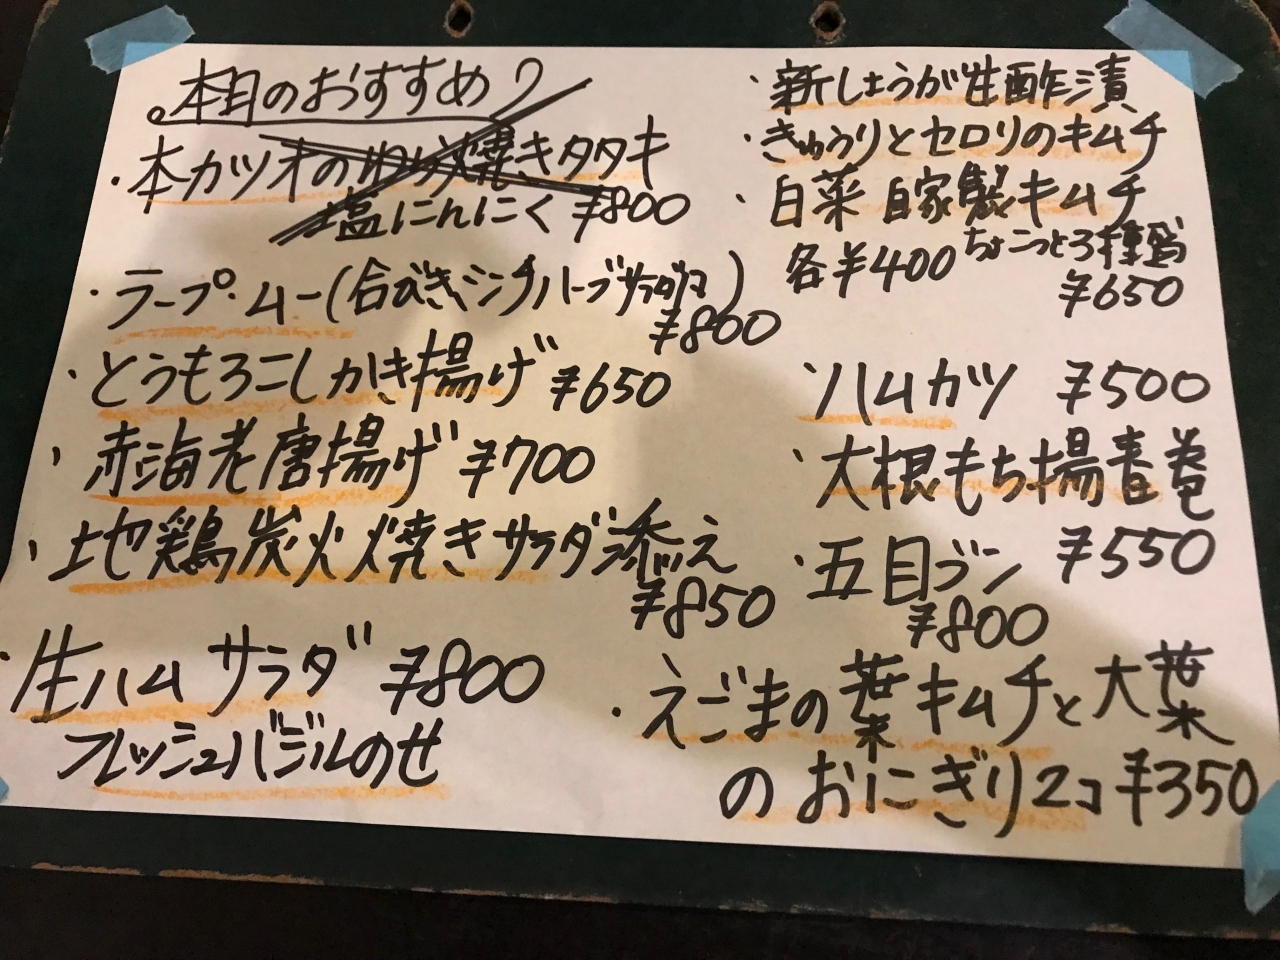 本日のおすすめ
・本カツオのわら焼きタタキ
塩にんにく ¥800
・ラープ・ムー(合びきミンチハーブサラダ)
¥800
・とうもろこしかき揚げ ¥650
・赤海老唐揚げ ¥700
・地鶏炭火焼きサラダ添え
¥850
・生ハムサラダ ¥800
フレッシュバジルのせ
・新しょうが甘酢漬
・きゅうりとセロリのキムチ
・白菜自家製キムチ
各¥400 ちょこっと3種盛
¥650
・ハムカツ ¥500
・大根もち揚春巻
¥550
・五目ヅン
¥800
・えごまの葉キムチと大葉
のおにぎり2コ ¥350